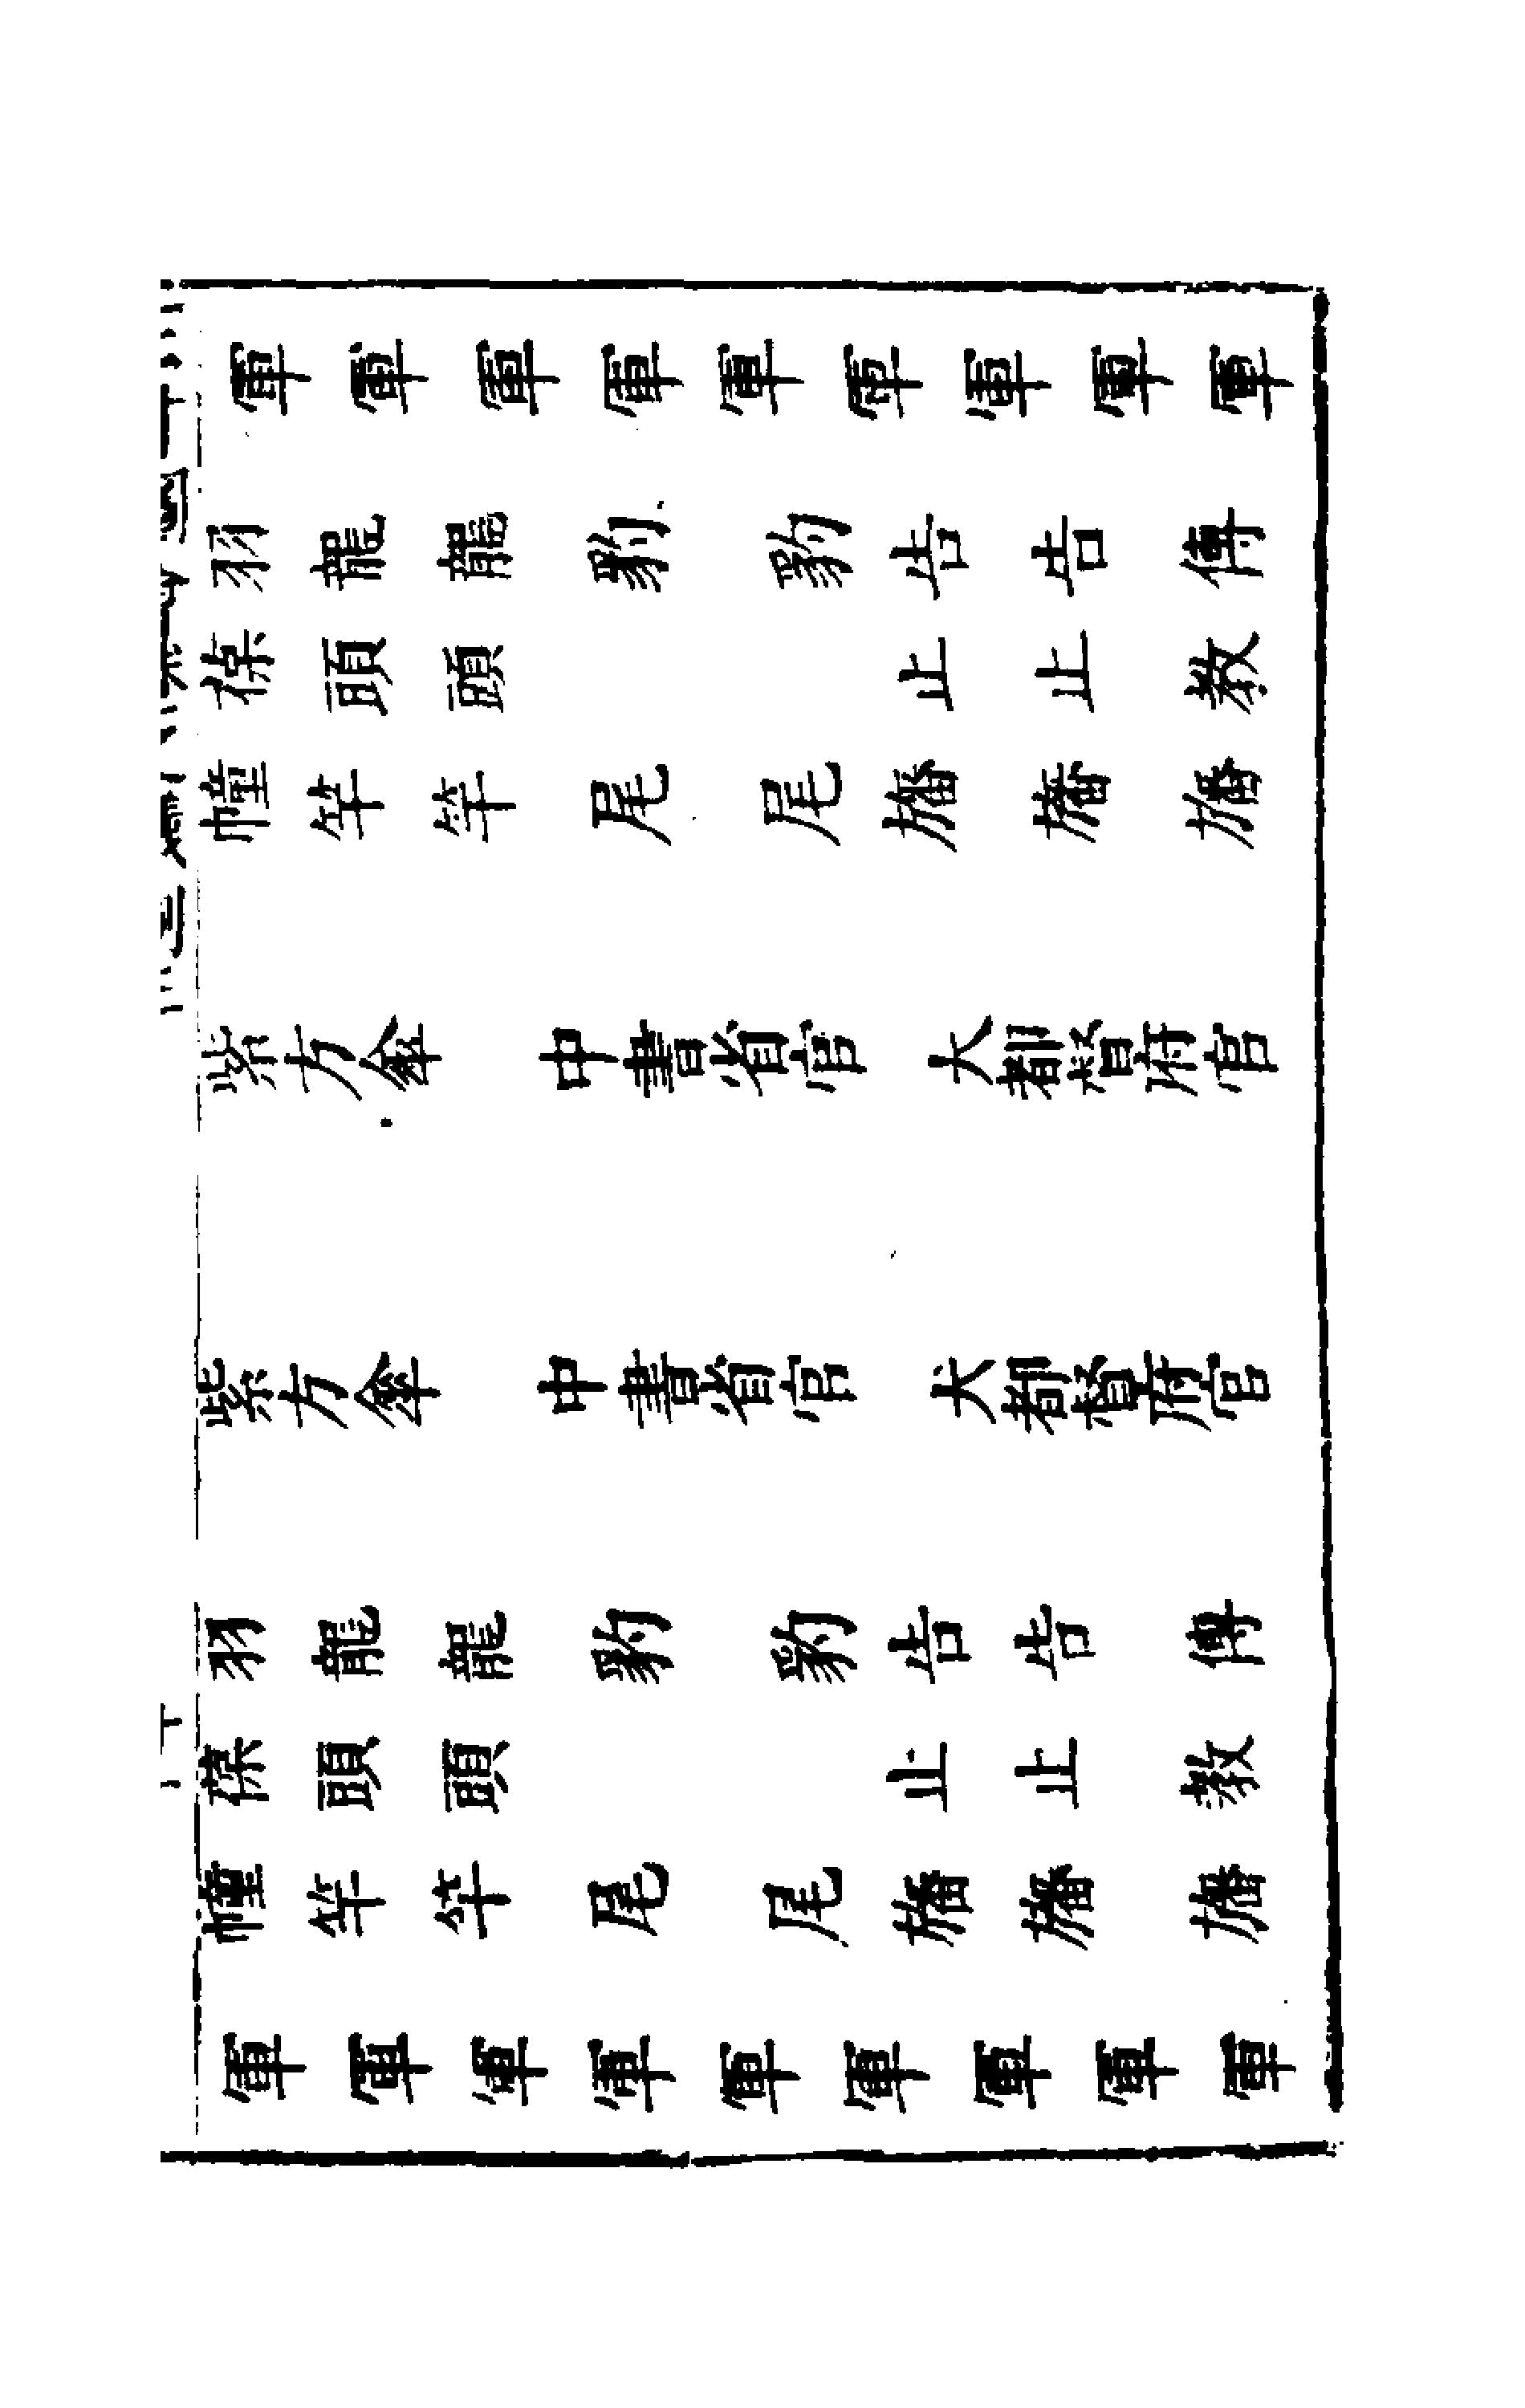 軍軍軍軍軍軍軍軍軍
羽葆幢
龍頭竿
龍頭竿
豹尾
豹尾
告止旛
告止旛
傳教旛
紫方傘 中書省官 大都督府官
紫方傘 中書省官 大都督府官
羽葆幢
龍頭竿
龍頭竿
豹尾
豹尾
告止旛
告止旛
傳教旛
軍軍軍軍軍軍軍軍軍